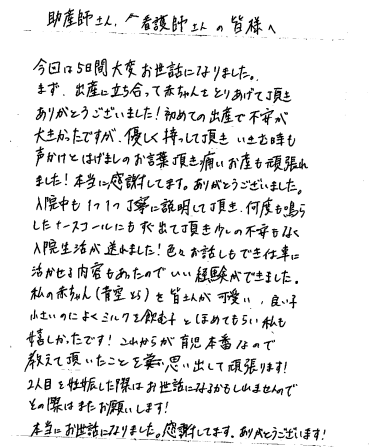 助産師さん、看護師さんの皆様へ
今回は5日間大変お世話になりました。
まず、出産に立ち合って赤ちゃんをとりあげて頂き
ありがとうございました！初めての出産で不安が
大きかったですが、優しく接して頂き いきむ時も
声かけとはげましのお言葉頂き痛いお産も頑張れ
ました！本当に感謝してます。ありがとうございました。
入院中も1つ1つ丁寧に説明して頂き、何度も鳴ら
したナースコールにもすぐ出て頂き少しの不安もなく
入院生活が送れました！色々お話しもでき仕事に
活かせる内容もあったのでいい経験ができました。
私の赤ちゃん(青空くん)を皆さんが可愛い、良い子
小さいのによくミルクを飲む子とほめてもらい私も
嬉しかったです！これからが育児本番なので
教えて頂いたことを思い出して頑張ります！
2人目を妊娠した際はお世話になるかもしれませんので
その際はまたお願いします！
本当にお世話になりました。感謝してます。ありがとうございます！